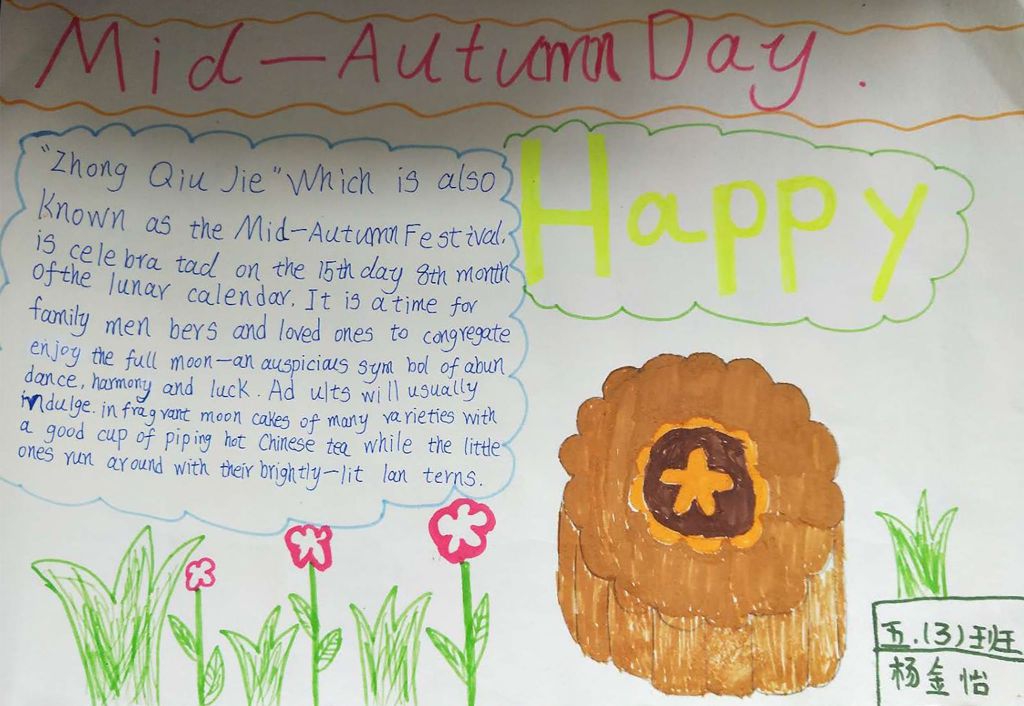 Mid-Autumn Day.
"Zhong Qiu Jie" Which is also
known as the Mid-Autumn Festival,
is celebra tad on the 15th day 8th month
of the lunar calendar. It is a time for
family men bers and loved ones to congregate
enjoy the full moon—an auspicious sym bol of abun
dance, harmony and luck. Ad ults will usually
indulge. in fragrant moon cakes of many varieties with
a good cup of piping hot Chinese tea while the little
ones run around with their brightly-lit lan terns.
Happy
五.(3)班
杨金怡